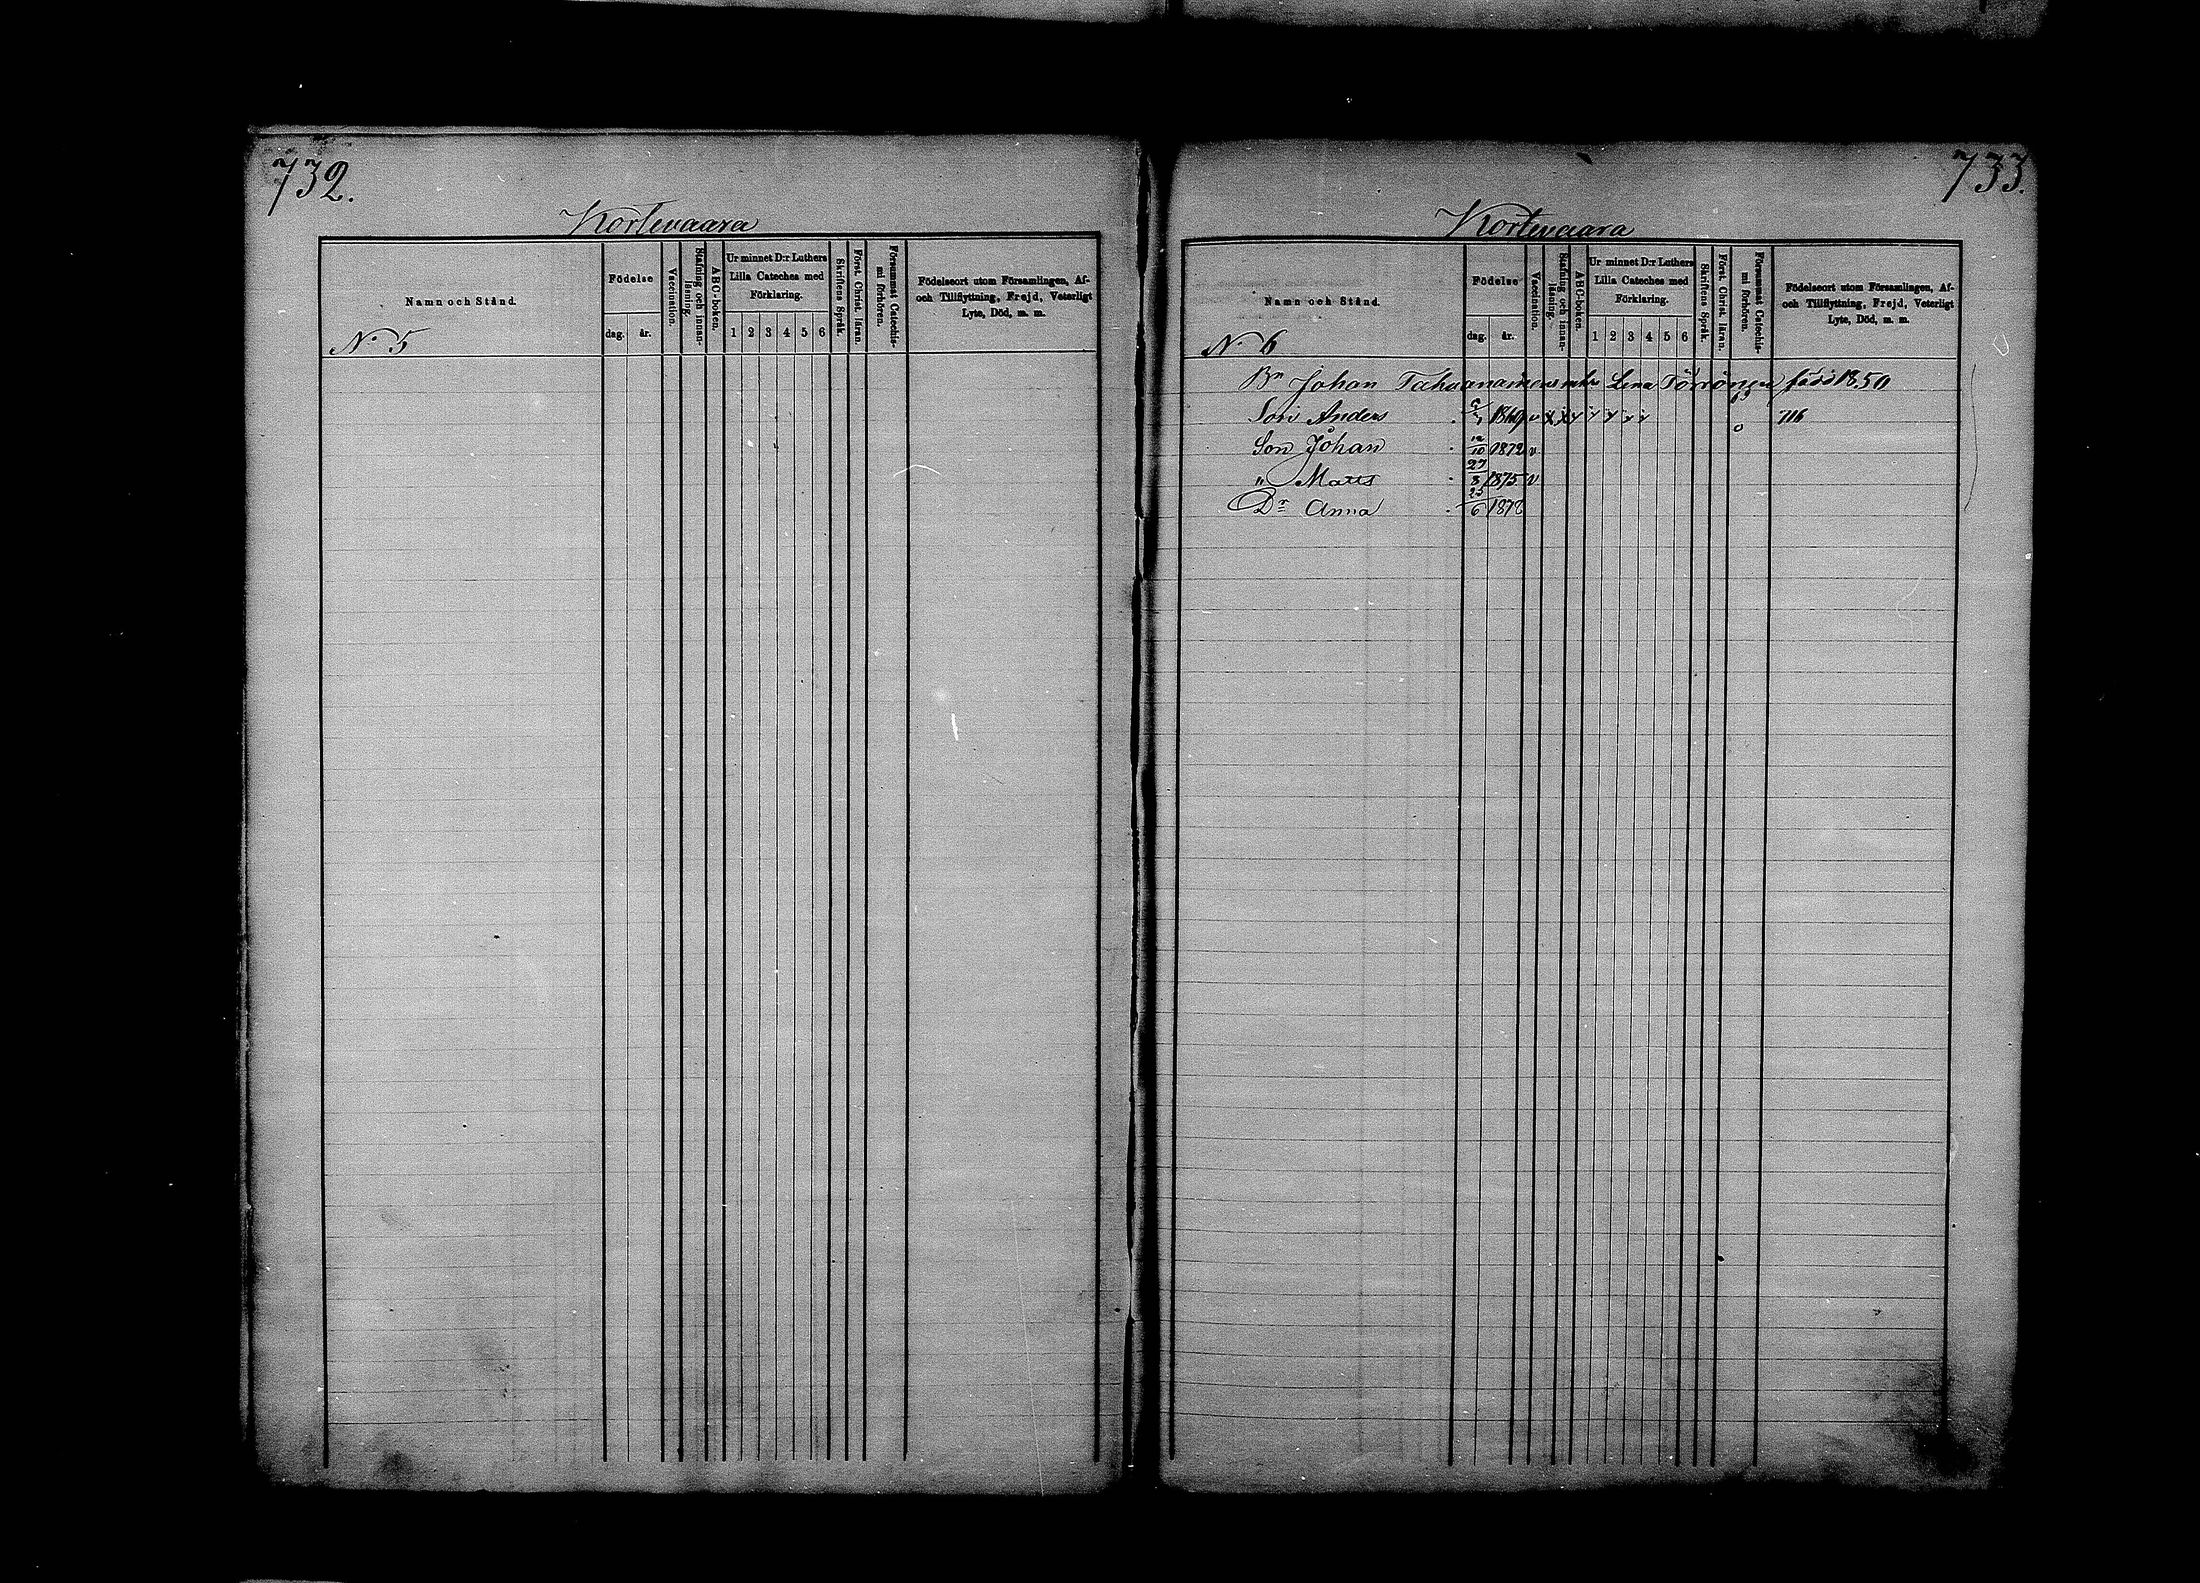 732.
Kortevaara
Namn och Stånd.
N:o 5
Födelse
dag. år.
Vaccination.
Stafning och innan-läsning.
ABC-boken.
Ur minnet D:r Luthers
Lilla Cateches med
Förklaring.
1 2 3 4 5 6
Skriftens Språk.
Först. Christ. läran.
Försummat Catechis-mi förhören.
Födelseort utom Församlingen, Af-
och Tillflyttning, Frejd, Veterligt
Lyte, Död, m. m.
733.
Kortevaara
Namn och Stånd.
N:o 6
Födelse
dag. år.
Vaccination.
Stafning och innan-läsning.
ABC-boken.
Ur minnet D:r Luthers
Lilla Cateches med
Förklaring.
1 2 3 4 5 6
Skriftens Språk.
Först. Christ. läran.
Försummat Catechis-mi förhören.
Födelseort utom Församlingen, Af-
och Tillflyttning, Frejd, Veterligt
Lyte, Död, m. m.
Bn Johan Lena Törrönen född 1850
Anders 1869 v 716
Son Johan 12/10 1872 v
" Matts 27/8 1875 v
Dr Anna 25/6 1878